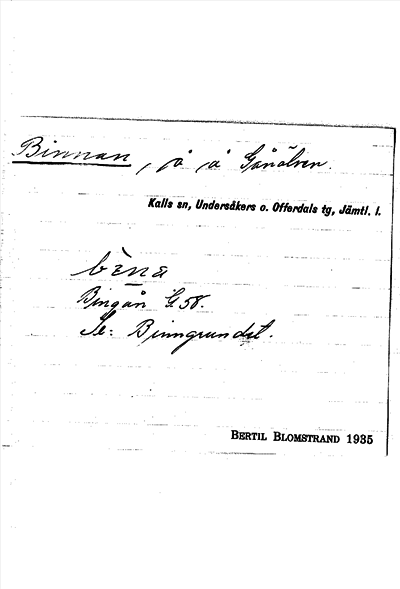 Binnan, å å Gånälven.
Kalls sn, Undersåkers o. Offerdals tg, Jämtl. l.
Bingån G 58.
Se: Binngrundet.
BERTIL BLOMSTRAND 1935